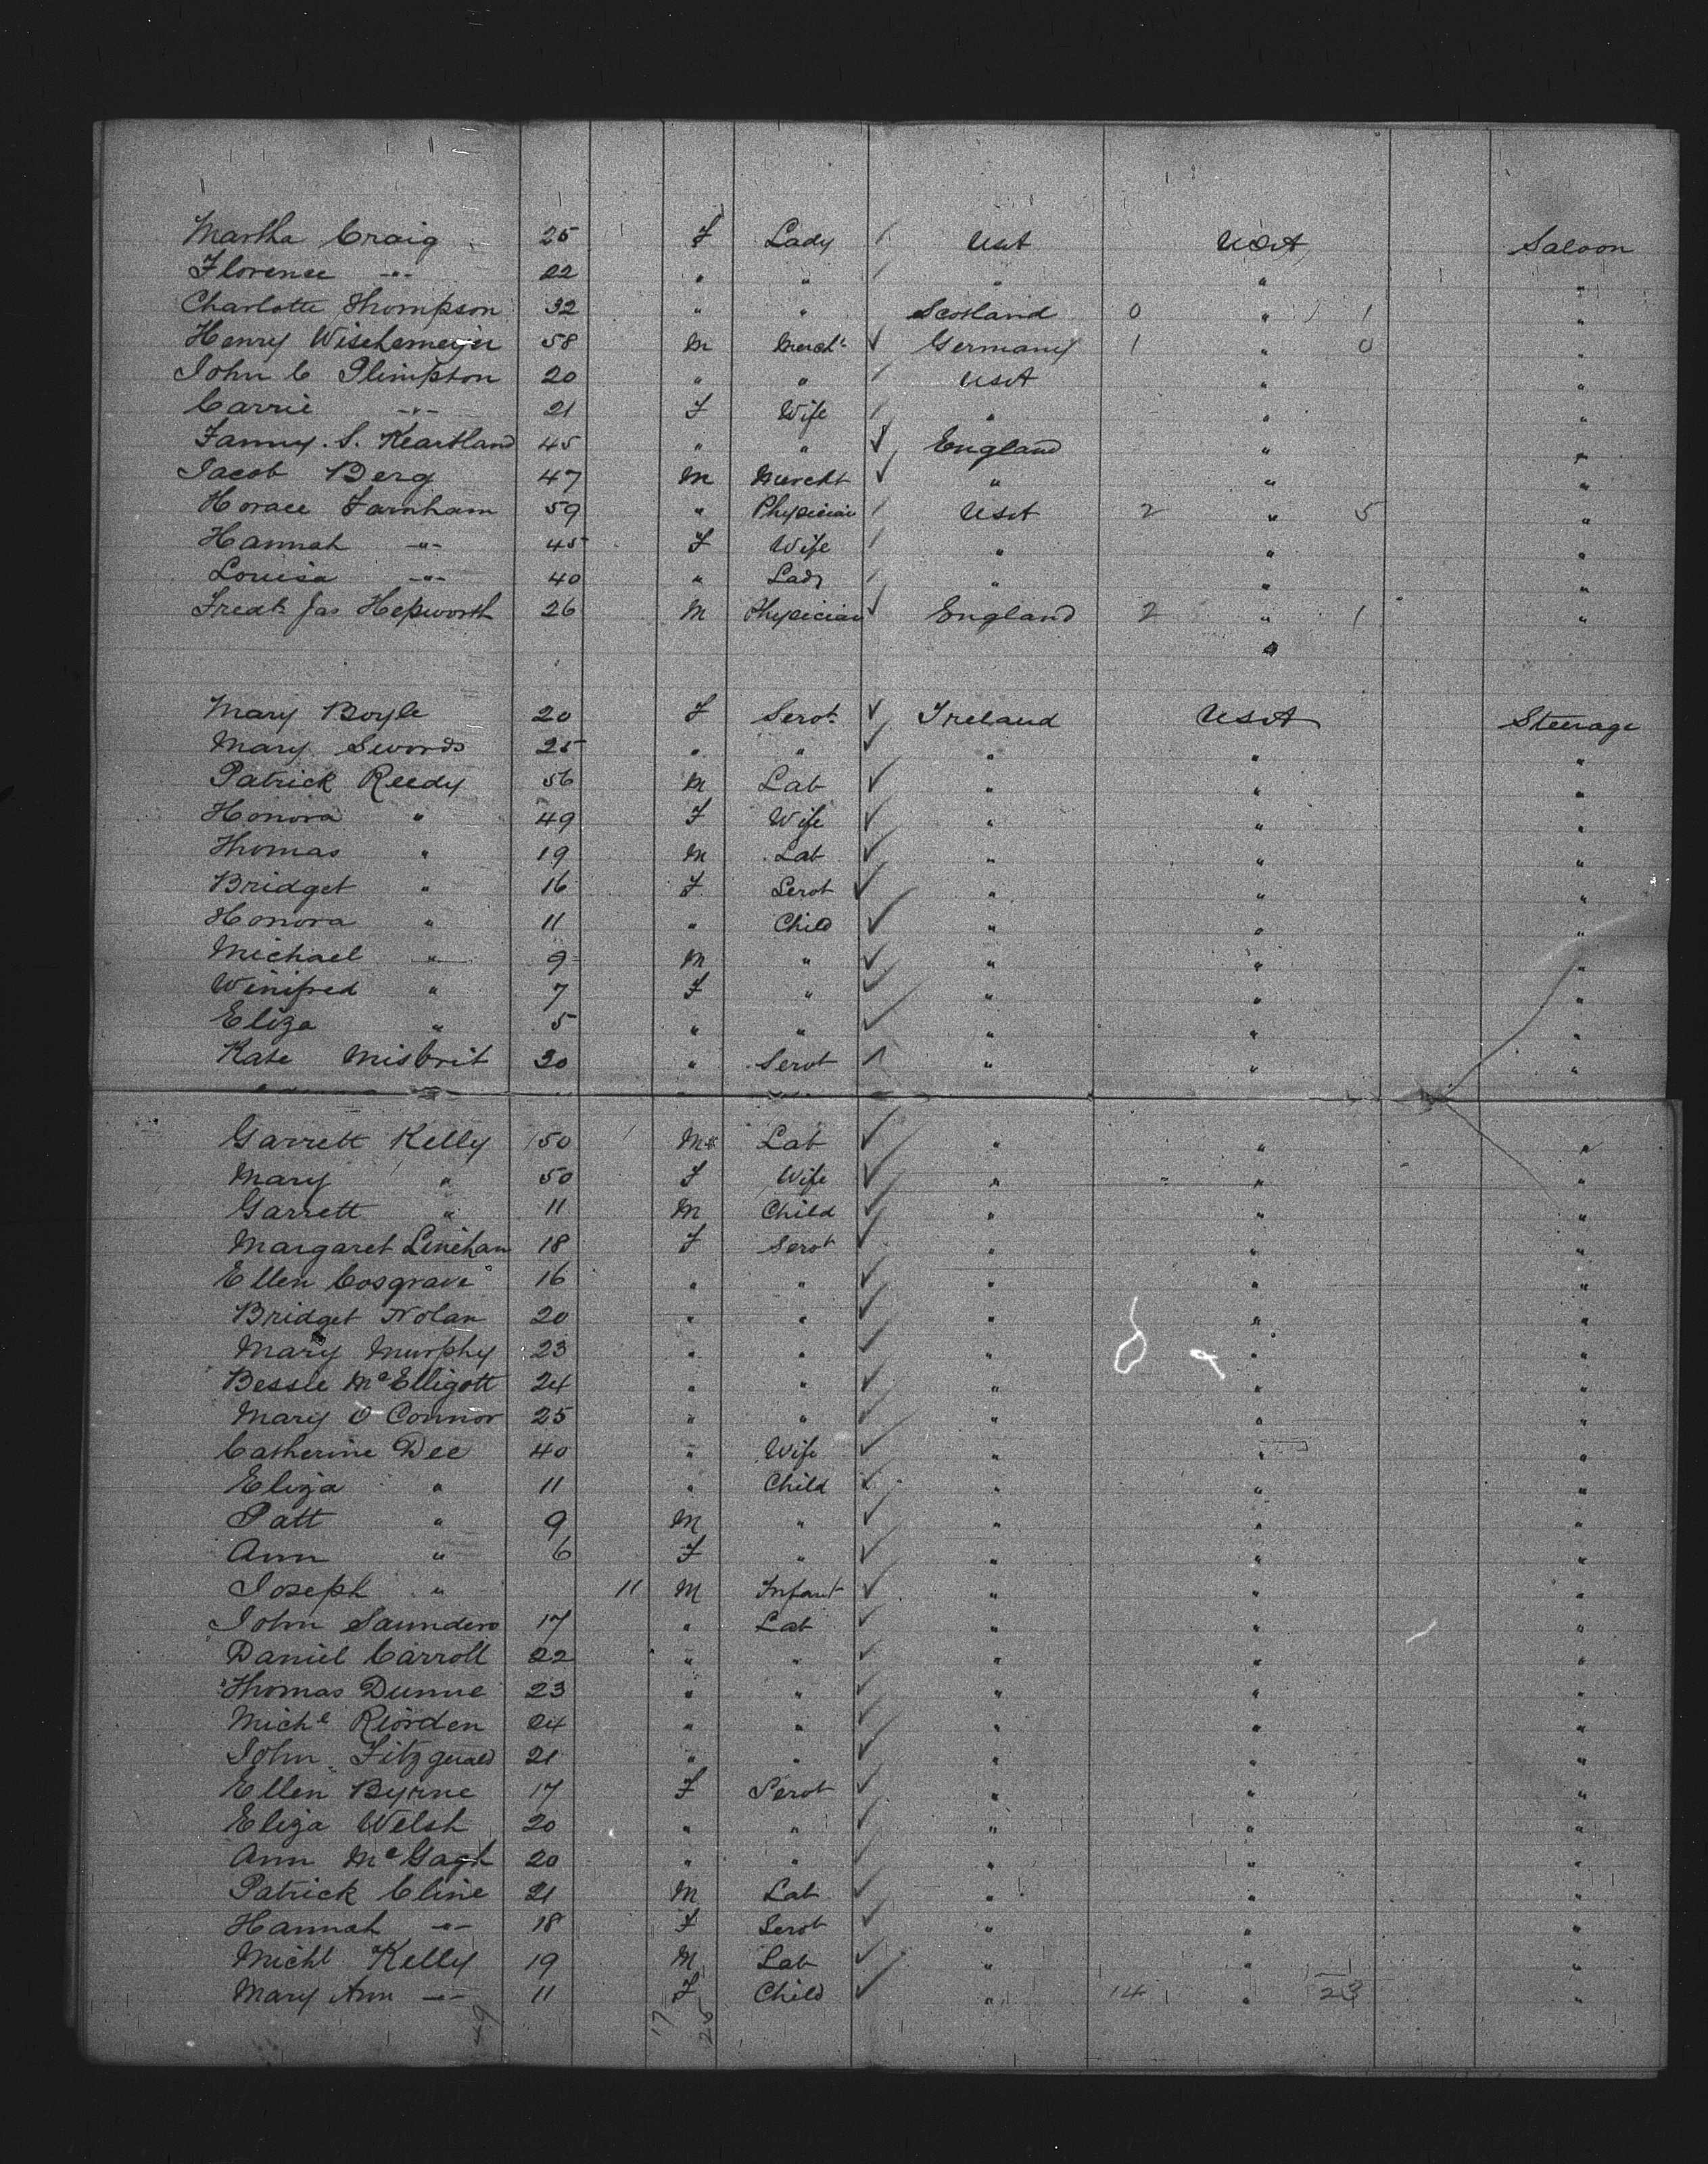 Martha Craig 25 F Lady / USA USA Saloon
Florence -"- 22 " " / " " "
Charlotte Thompson 32 " " Scotland 0 " 1 "
Henry Wischemeyer 58 M Mercht ✓ Germany 1 " 0 "
John C Plimpton 20 " " / USA " "
Carrie -"- 21 F Wife / " " "
Fanny. S. Keartland 45 " " ✓ England " "
Jacob Berg 47 M Mercht ✓ " " "
Horace Farnham 59 " Physician / USA 2 " 5 "
Hannah -"- 45 F Wife / " " "
Louisa -"- 40 " Lady / " " "
Fredk Jas Hepworth 26 M Physician ✓ England 2 " 1 "
"
Mary Boyle 20 F Servt ✓ Ireland USA Steerage
Mary Swords 25 " " ✓ " " "
Patrick Reedy 56 M Lab ✓ " " "
Honora " 49 F Wife ✓ " " "
Thomas " 19 M Lab ✓ " " "
Bridget " 16 F Servt ✓ " " "
Honora " 11 " Child ✓ " " "
Michael " 9 M " ✓ " " "
Winifred " 7 F " ✓ " " "
Eliza " 5 " " ✓ " " "
Kate 20 " Servt " " "
Garrett Kelly 50 M Lab ✓ " " "
Mary " 50 F Wife ✓ " " "
Garrett " 11 M Child ✓ " " "
Margaret Linehan 18 F Servt ✓ " " "
Ellen Cosgrave 16 " " ✓ " " "
Bridget Nolan 20 " " ✓ " " "
Mary Murphy 23 " " ✓ " " "
Bessie McElligott 24 " " ✓ " " "
Mary O Connor 25 " " ✓ " " "
Catherine Dee 40 " Wife ✓ " " "
Eliza " 11 " Child ✓ " " "
Patt " 9 M " ✓ " " "
Ann " 6 F " ✓ " " "
Joseph " 11 M Infant ✓ " " "
John Saunders 17 " Lab ✓ " " "
Daniel Carroll 22 " " ✓ " " "
Thomas Dunne 23 " " ✓ " " "
Michl Riorden 24 " " ✓ " " "
John Fitzgerald 21 " " ✓ " " "
Ellen Byrne 17 F Servt ✓ " " "
Eliza Welsh 20 " " ✓ " " "
Ann McGagh 20 " " ✓ " " "
Patrick Cline 21 M Lab ✓ " " "
Hannah -"- 18 F Servt ✓ " " "
Michl Kelly 19 M Lab ✓ " " "
Mary Ann -"- 11 F Child ✓ " 14 " 23 "
49 17 25